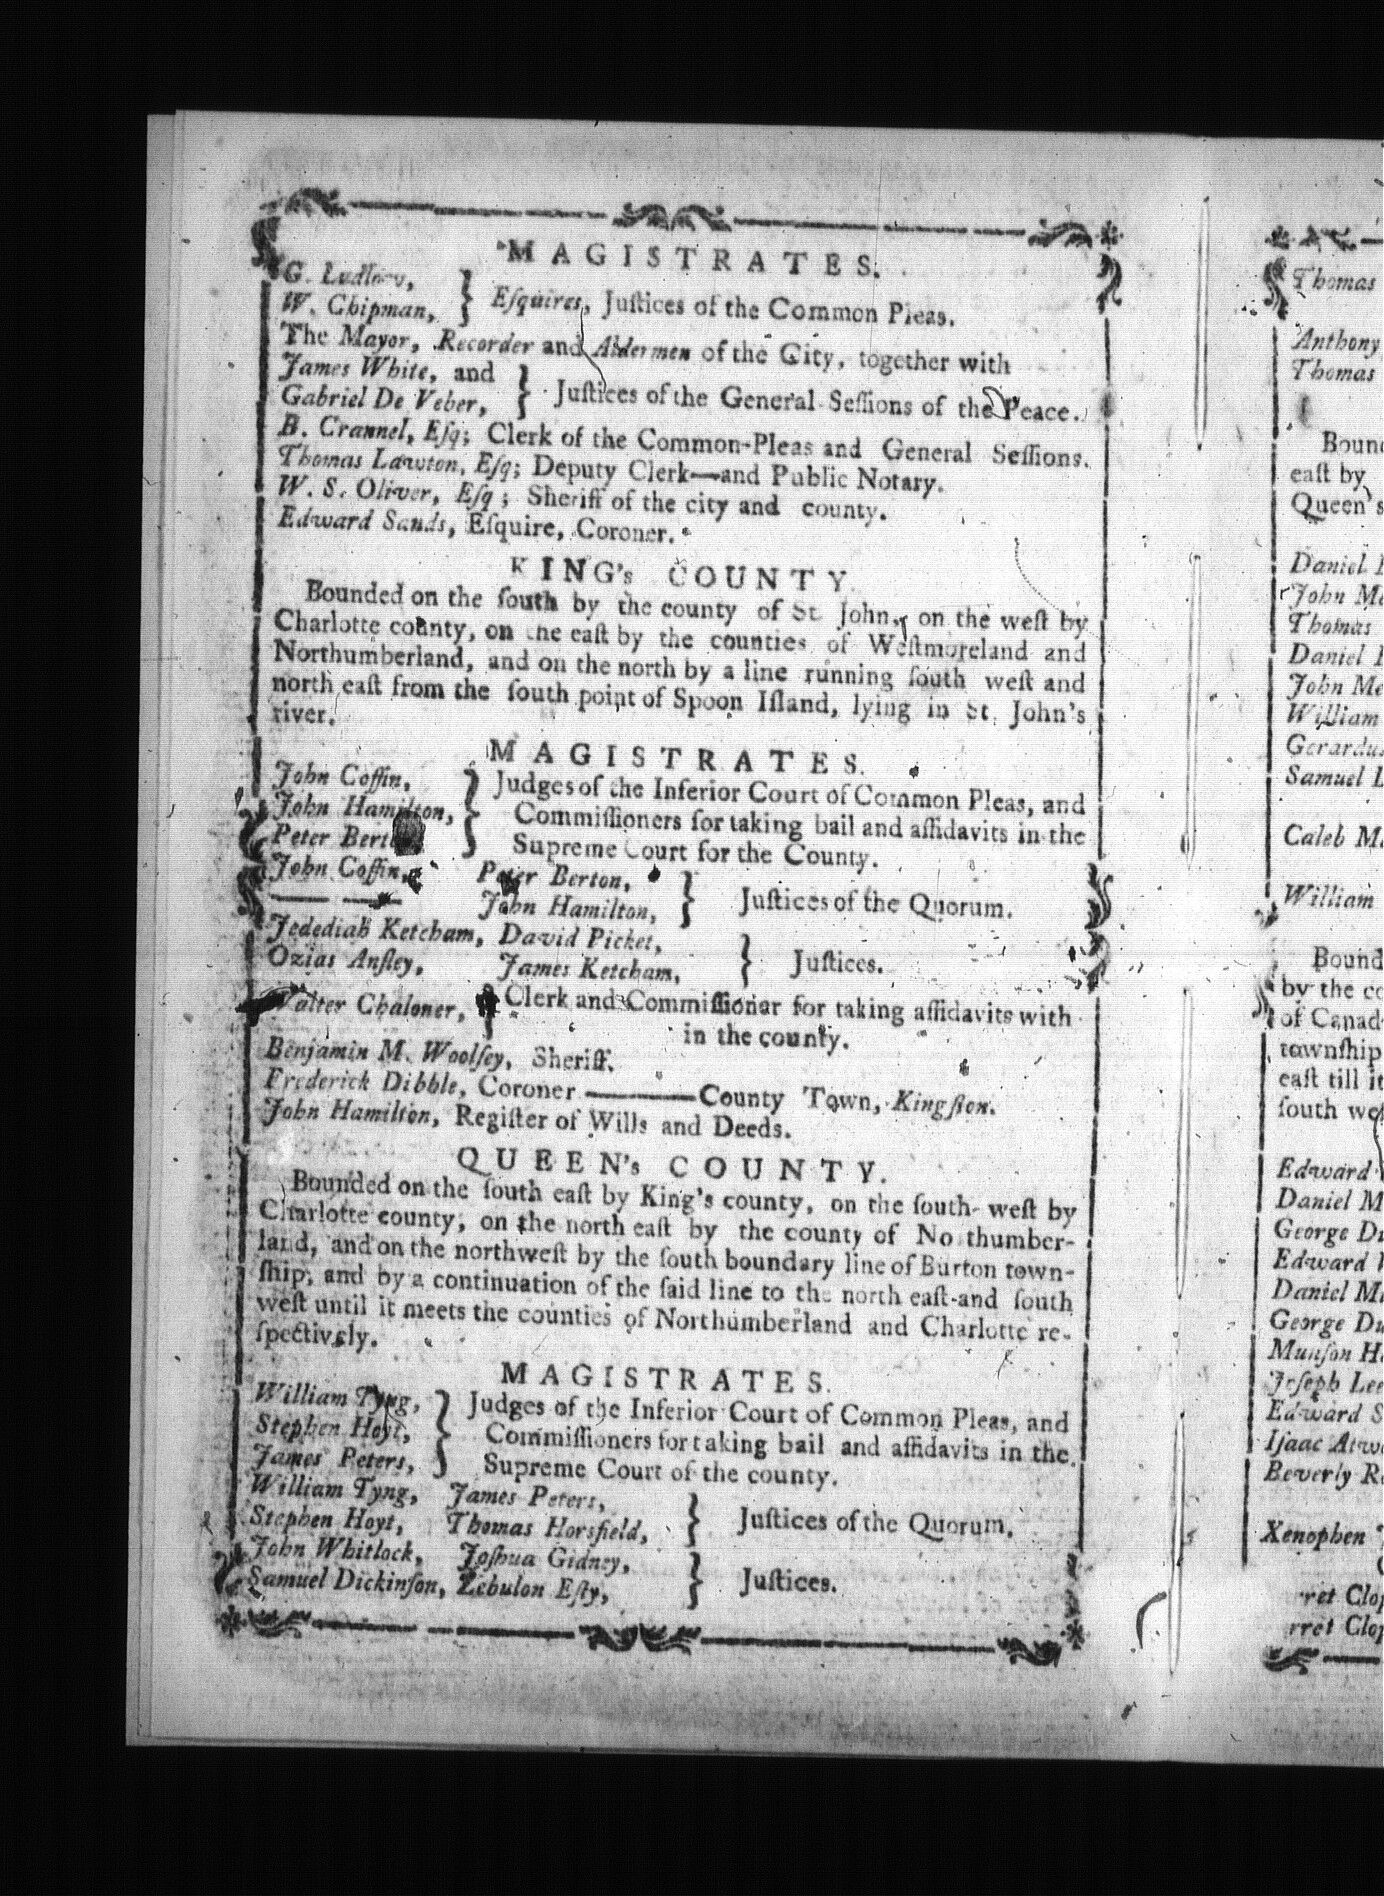 MAGISTRATES.
G. Ludlow,
W. Chipman, } Eſquires, Juſtices of the Common Pleas.
The Mayor, Recorder and Aldermen of the City, together with
James White, and
Gabriel De Veber, } Juſtices of the General Seſſions of the Peace.
B. Crannel, Eſq; Clerk of the Common-Pleas and General Seſſions.
Thomas Lawton, Eſq; Deputy Clerk—and Public Notary.
W. S. Oliver, Eſq; Sheriff of the city and county.
Edward Sands, Eſquire, Coroner.
KING's COUNTY.
Bounded on the ſouth by the county of St. John, on the weſt by
Charlotte county, on the eaſt by the counties of Weſtmoreland and
Northumberland, and on the north by a line running ſouth weſt and
north eaſt from the ſouth point of Spoon Iſland, lying in St. John's
river.
MAGISTRATES.
John Coffin, } Judges of the Inferior Court of Common Pleas, and
John Hamilton, Commiſſioners for taking bail and affidavits in the
Peter Berton Supreme Court for the County.
John Coffin, Peter Berton, } Juſtices of the Quorum.
John Hamilton,
Jedediah Ketcham, David Picket, } Juſtices.
Ozias Anſley, James Ketcham,
Walter Chaloner, } Clerk and Commiſſioner for taking affidavits with
in the county.
Benjamin M. Woolſey, Sheriff.
Frederick Dibble, Coroner ——— County Town, Kingſton.
John Hamilton, Regiſter of Wills and Deeds.
QUEEN's COUNTY.
Bounded on the ſouth eaſt by King's county, on the ſouth-weſt by
Charlotte county, on the north eaſt by the county of No thumber-
land, and on the northweſt by the ſouth boundary line of Burton town-
ſhip, and by a continuation of the ſaid line to the north eaſt-and ſouth
weſt until it meets the counties of Northumberland and Charlotte re-
ſpectively.
MAGISTRATES.
William Tyng, } Judges of the Inferior Court of Common Pleas, and
Stephen Hoyt, Commiſſioners for taking bail and affidavits in the
James Peters, Supreme Court of the county.
William Tyng, James Peters, } Juſtices of the Quorum.
Stephen Hoyt, Thomas Horsfield,
John Whitlock, Joſhua Gidney, } Juſtices.
Samuel Dickinſon, Zebulon Eſty,
Thomas
Anthony
Thomas
Boun
eaſt by
Queen's
Daniel
John M
Thomas
Daniel
John Me
William
Gerardus
Samuel
Caleb M
William
Bound
by the co
of Canad
townſhip
eaſt till it
ſouth weſ
Edward
Daniel M
George Du
Edward
Daniel M
George Du
Munſon H
Joſeph Lee
Edward S
Iſaac Atw
Beverly R
Xenophen
rret Clop
rret Clop